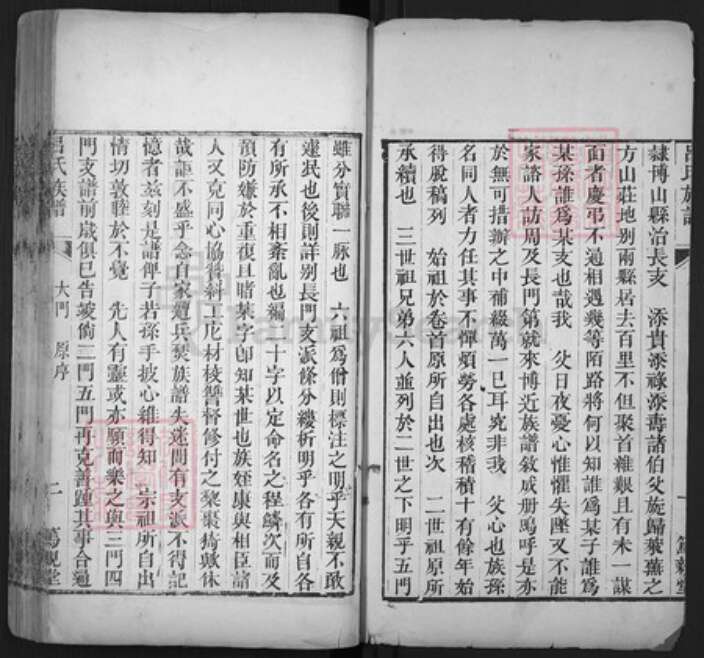 呂氏族譜
隸博山縣治長支 添貴添祿添壽諸伯父旋歸萊蕪之
方山莊地別兩縣居去百里不但聚首維艱且有未一謀
面者慶弔不通相遇幾等陌路將何以知誰為某子誰為
某孫誰為某支也哉我 父日夜憂心惟懼失墜又不能
家諮人訪周及長門第就來博近族譜敘成册嗚呼是誠
於無可措辦之中補綴萬一已耳究非我 父心也族孫
名同人者力任其事不憚煩勞各處核稽積十有餘年始
得脫稿列 始祖於卷首原所自出也次 二世祖原所
承續也 三世祖兄弟六人並列於二世之下明乎五門
雖分實聯一脈也 六祖為僧則標注之明乎天親不敢
遽泯也後則詳別長門支派條分縷析明乎各有所自各
有所承不相紊亂也編二十字以定命名之程鱗次而及
預防嫌於重復且睹某字卽知某世也族姪康與相臣諸
人又克同心協贊料工庀材校讐督修付之棃棗猗歟休
哉詎不盛乎念自家遭兵燹族譜失迷間有支派不得記
憶者茲刻是譜俾子若孫手披心維得知 宗祖所自出
情切敦睦於不覺 先人有靈或亦願而樂之與三門四
門支譜前歲俱已告竣倘二門五門再克善踵其事合通
呂氏族譜 大門 原序 二 篤親堂